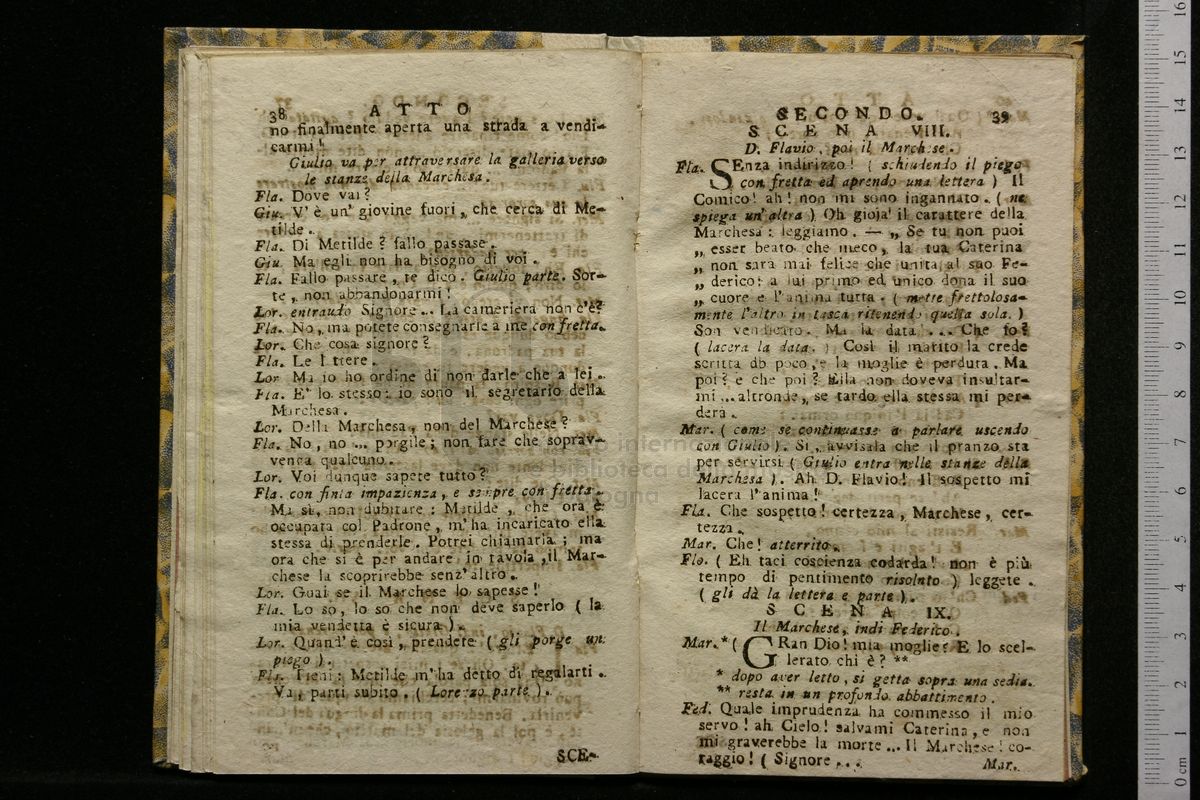 38 ATTO
no finalmente aperta una strada a vendi-
carmi!
Giulio va per attraversare la galleria verso
le stanze della Marchesa.
Fla. Dove vai?
Giu. V'è un' giovine fuori, che cerca di Me-
tilde.
Fla. Di Metilde? fallo passase.
Giu. Ma egli non ha bisogno di voi.
Fla. Fallo passare, te dico. Giulio parte. Sor-
te, non abbandonarmi!
Lor. entraudo Signore... La cameriera non c'è?
Fla. No, ma potete consegnarle a me con fretta.
Lor. Che cosa signore?
Fla. Le l ttere.
Lor Ma io ho ordine di non darle che a lei.
Fla. E' lo stesso: io sono il segretario della
Marchesa.
Lor. Della Marchesa, non del Marchese?
Fla. No, no ... porgile; non fare che soprav-
venga qualcuno.
Lor. Voi dunque sapete tutto?
Fla. con finta impazienza, e sempre con fretta.
Ma sì, non dubitare: Matilde, che ora è
occupata col Padrone, m'ha incaricato ella
stessa di prenderle. Potrei chiamarla; ma
ora che si è per andare in tavola, il Mar-
chese la scoprirebbe senz'altro.
Lor. Guai se il Marchese lo sapesse!
Fla. Lo so, lo so che non deve saperlo ( la
mia vendetta è sicura ).
Lor. Quand'è così, prendete ( gli porge un
piego ).
Fla. Tieni: Metilde m'ha detto di regalarti.
Va, parti subito. ( Lorenzo parte ).
SCE-
SECONDO. 39
SCENA VIII.
D. Flavio, poi il Marchese.
Fla. SEnza indirizzo! ( schiudendo il piego
con fretta ed aprendo una lettera ) Il
Comico! ah! non mi sono ingannato. ( ne
spiega un'altra ) Oh gioja! il carattere della
Marchesa: leggiamo. — „ Se tu non puoi
„ esser beato che meco, la tua Caterina
„ non sarà mai felice che unita al suo Fe-
„ derico: a lui primo ed unico dona il suo
„ cuore e l'anima tutta. ( mette frettolosa-
mente l'altro in tasca ritenendo quella sola. )
Son vendicato. Ma la data .... Che fo?
( lacera la data. ) Così il marito la crede
scritta db poco, e la moglie è perduta. Ma
poi? e che poi? Ella non doveva insultar-
mi ... altronde, se tardo ella stessa mi per-
derà.
Mar. ( come se continuasse a parlare uscendo
con Giulio ). Sì, avvisala che il pranzo sta
per servirsi ( Giulio entra nelle stanze della
Marchesa ). Ah D. Flavio! Il sospetto mi
lacera l'anima!
Fla. Che sospetto! certezza, Marchese, cer-
tezza.
Mar. Che! atterrito.
Flo. ( Eh taci coscienza codarda! non è più
tempo di pentimento risolnto ) leggete.
( gli dà la lettera e parte ).
SCENA IX.
Il Marchese, indi Federico.
Mar. * ( GRan Dio! mia moglie? E lo scel-
lerato chi è? **
* dopo aver letto, si getta sopra una sedia.
** resta in un profondo abbattimento.
Fed. Quale imprudenza ha commesso il mio
servo! ah Cielo! salvami Caterina, e non
mi graverebbe la morte... Il Marchese! co-
raggio! ( Signore ...
Mar.